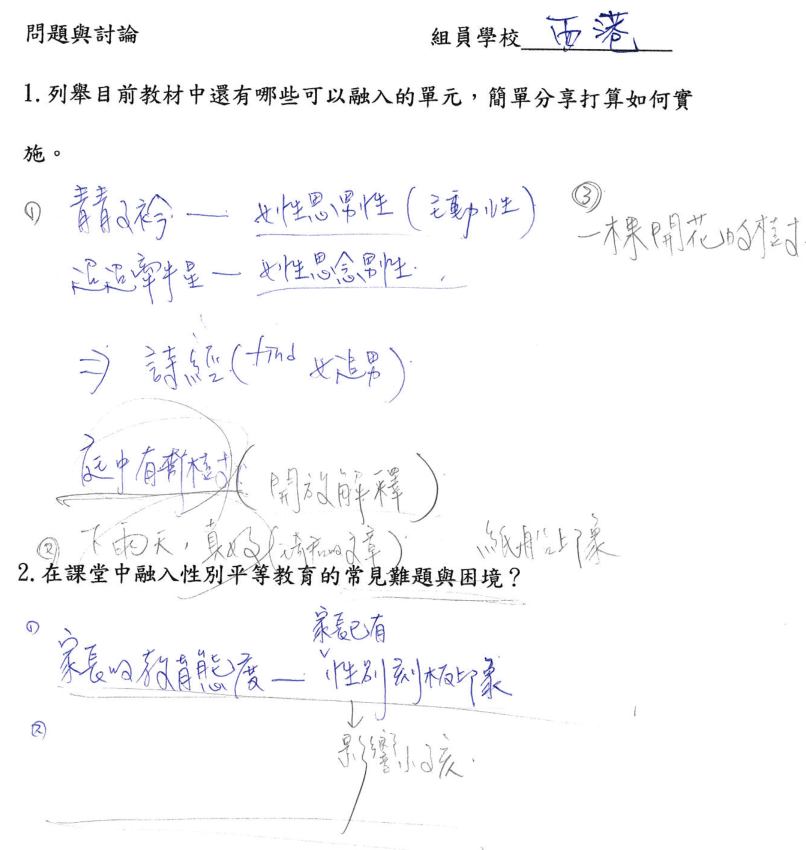 問題與討論 組員學校 西港
1. 列舉目前教材中還有哪些可以融入的單元，簡單分享打算如何實
施。
① 青青子衿 — 女性思男性(主動性)
③
一棵開花的樹
迢迢牽牛星 — 女性思念男性.
⇒ 詩經(find 女追男)
庭中有奇樹(開放解釋)
② 下雨天，真好(琦君的文章) 紙船印象
2. 在課堂中融入性別平等教育的常見難題與困境？
家長已有
① 家長的教育態度 — 性別刻板印象
↓
② 影響小孩.